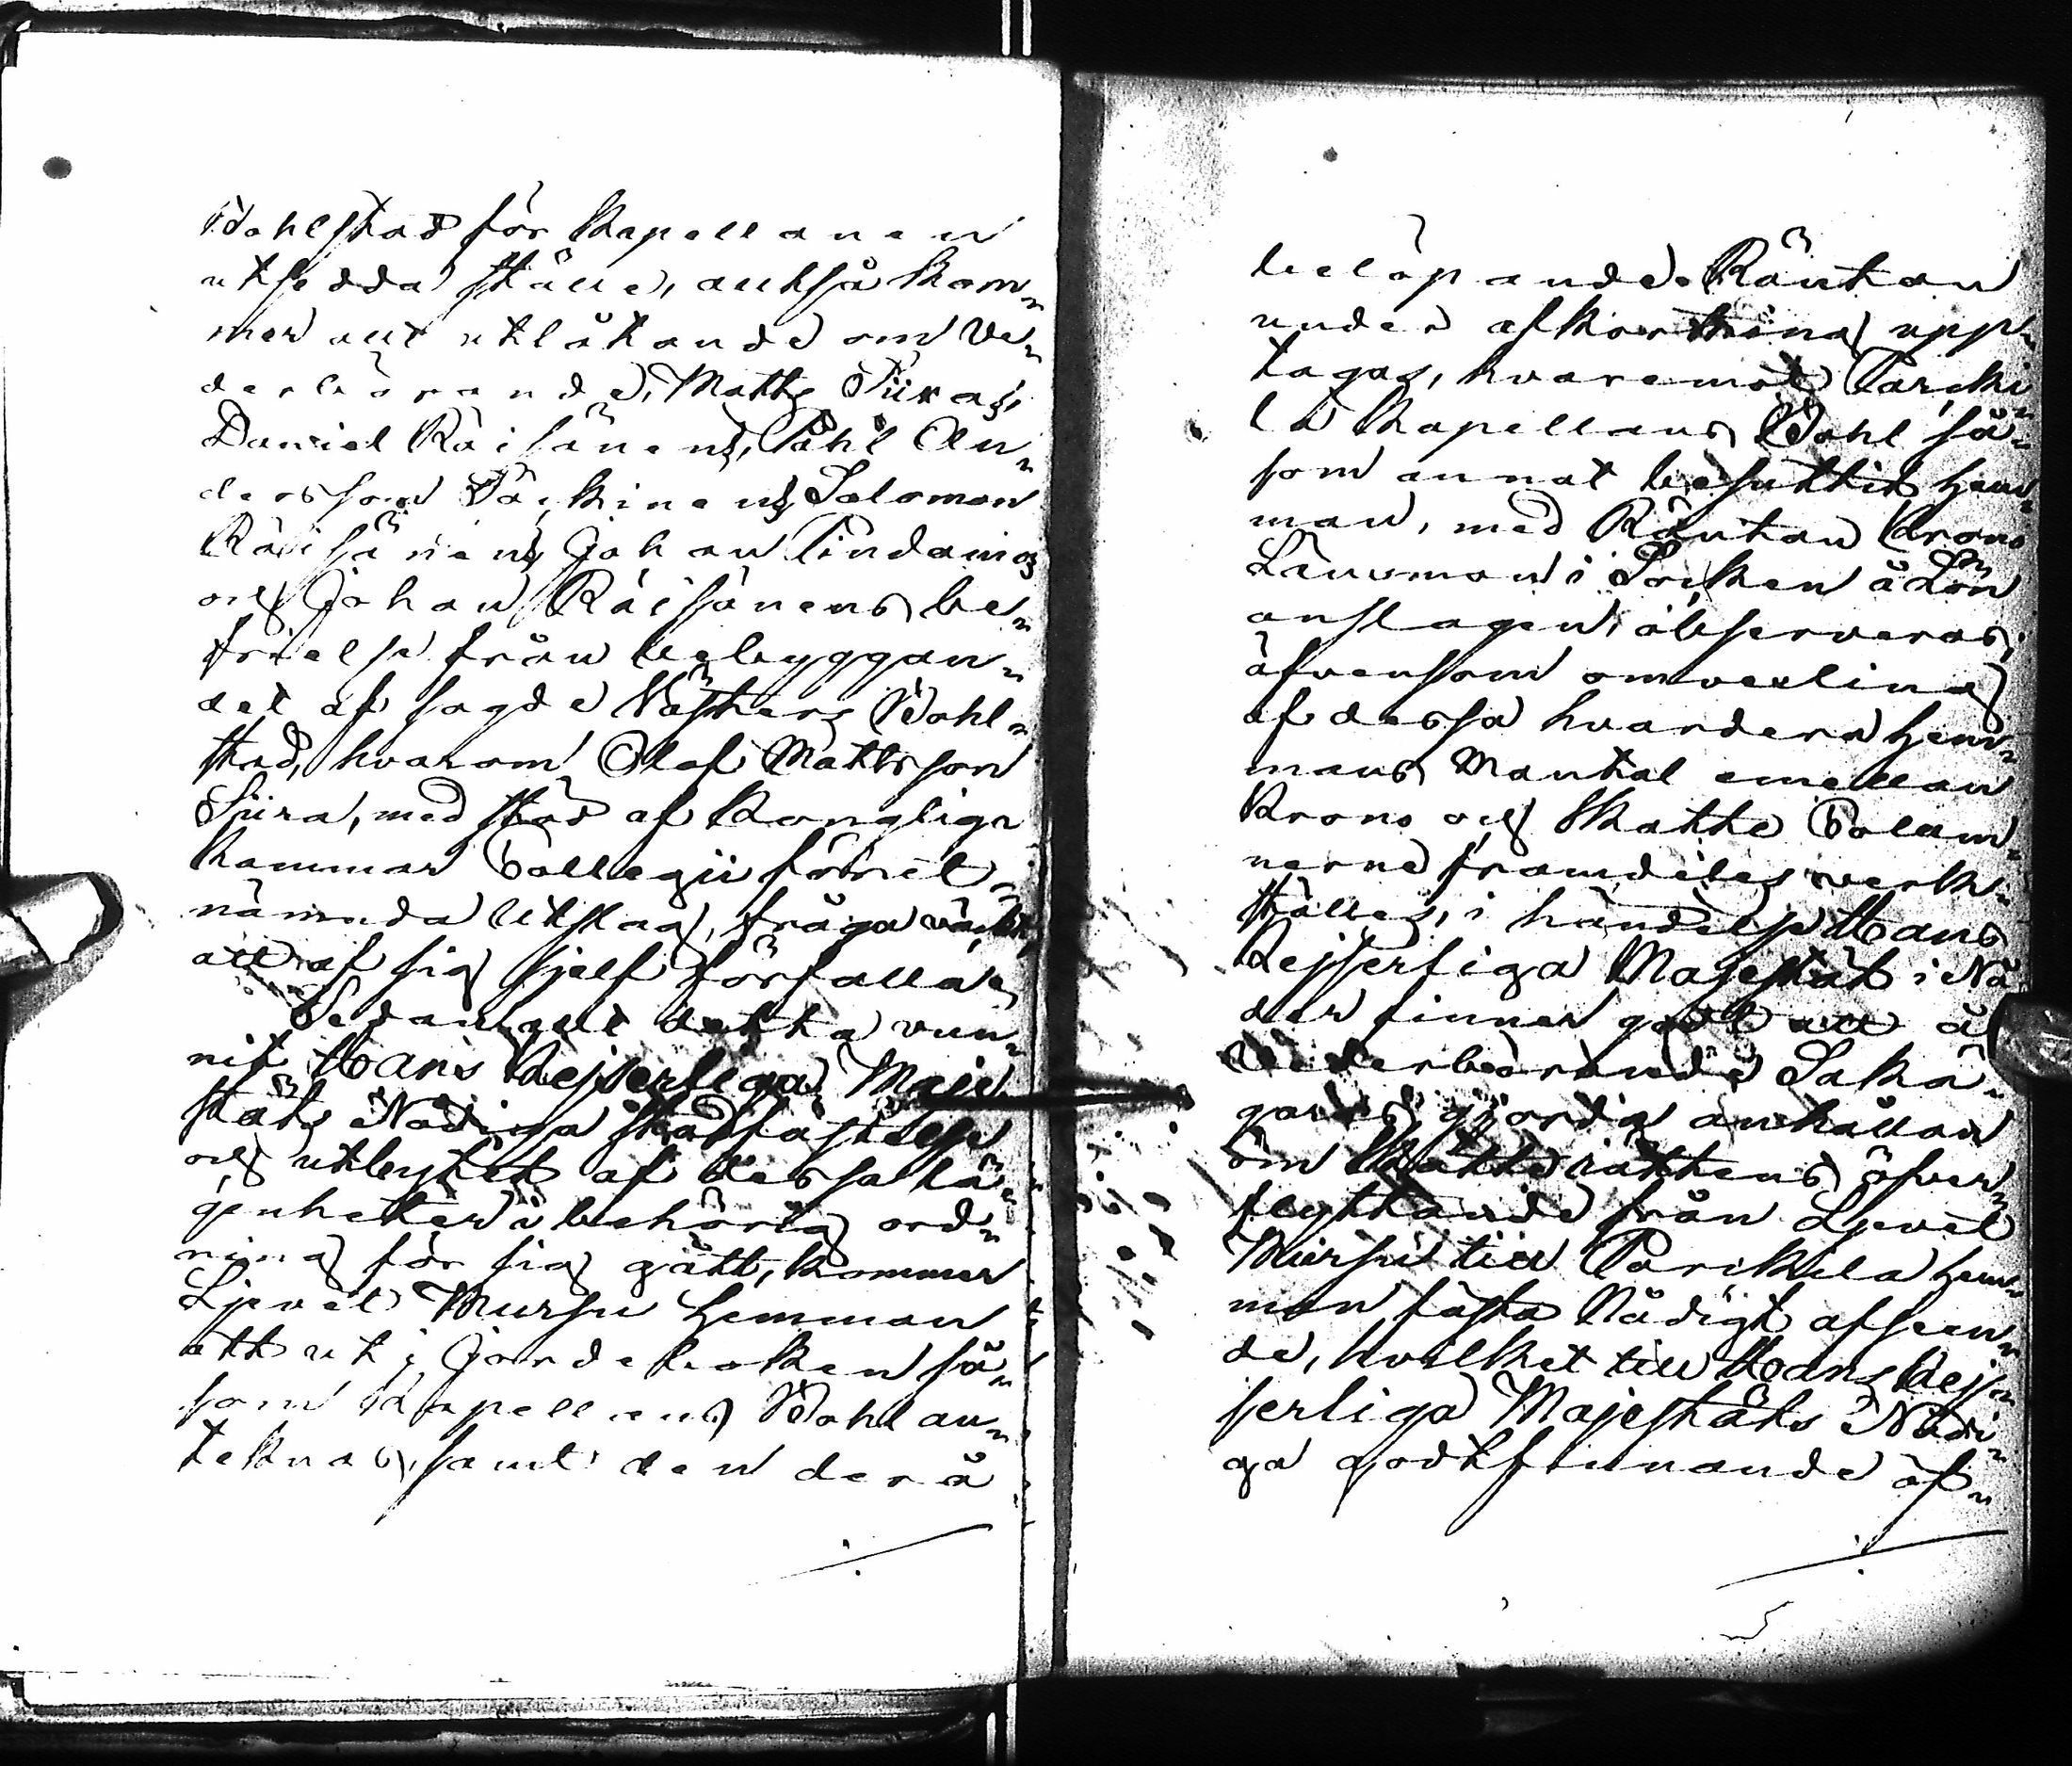 Bohlstad för Kapellanen
utsedda ställe, altså kom„
mer all utlåtande om ve„
derbörande, Matts Siiras,
Daniel Räisänens, Påhl An„
dersson Päckinens, Salomon
Räisänens, Johan Tindains
och Johan Räisänens be„
frielse från bebyggan„
det af sagde Kosters Bohl„
stad, hvarom Olof Mattsson
Siira, med stöd af Kongliga
Kammar Collegii förrēt„
nämnda Utslag, fråga väckt,
att af sig sjelf förfalla.
Sedan allt detta vun„
nit Hans Kejserliga Maje„
stäts Nådiga stadfästelse
och utbytet af dessa lä„
genheter i behörig ord„
ning för sig gått, kommer
Ljevel Mursu Hemman
att uti Jordeboken så„
som Kapellans Bohl an„
teknas, samt den derå
belöpande Räntan
under afkortning upp„
tagas, hvaremot Parcki„
la Kapellans Bohl så„
som annat besuttit Hem„
man, med Räntan Krono
Länsman i Socken å Lön
anslagen, observeras,
äfvensom omvexling
af dessa hvardera Hem„
mans Mantal emellan
Krono och Skatte Colum„
nerne framdeles verk„
ställes, i händelse Hans
Kejserliga Majestät i Nå„
der finner godt att å
Vederbörande Sakä„
gares gjorda anhållan
om Skatterättens öfver„
flyttande från Ljevel
Mursu till Parckila Hem„
man fästa Nådigt afseen„
de, hvilket till Hans Kej„
serliga Majestäts Nådi„
ga godtfinnande öf„